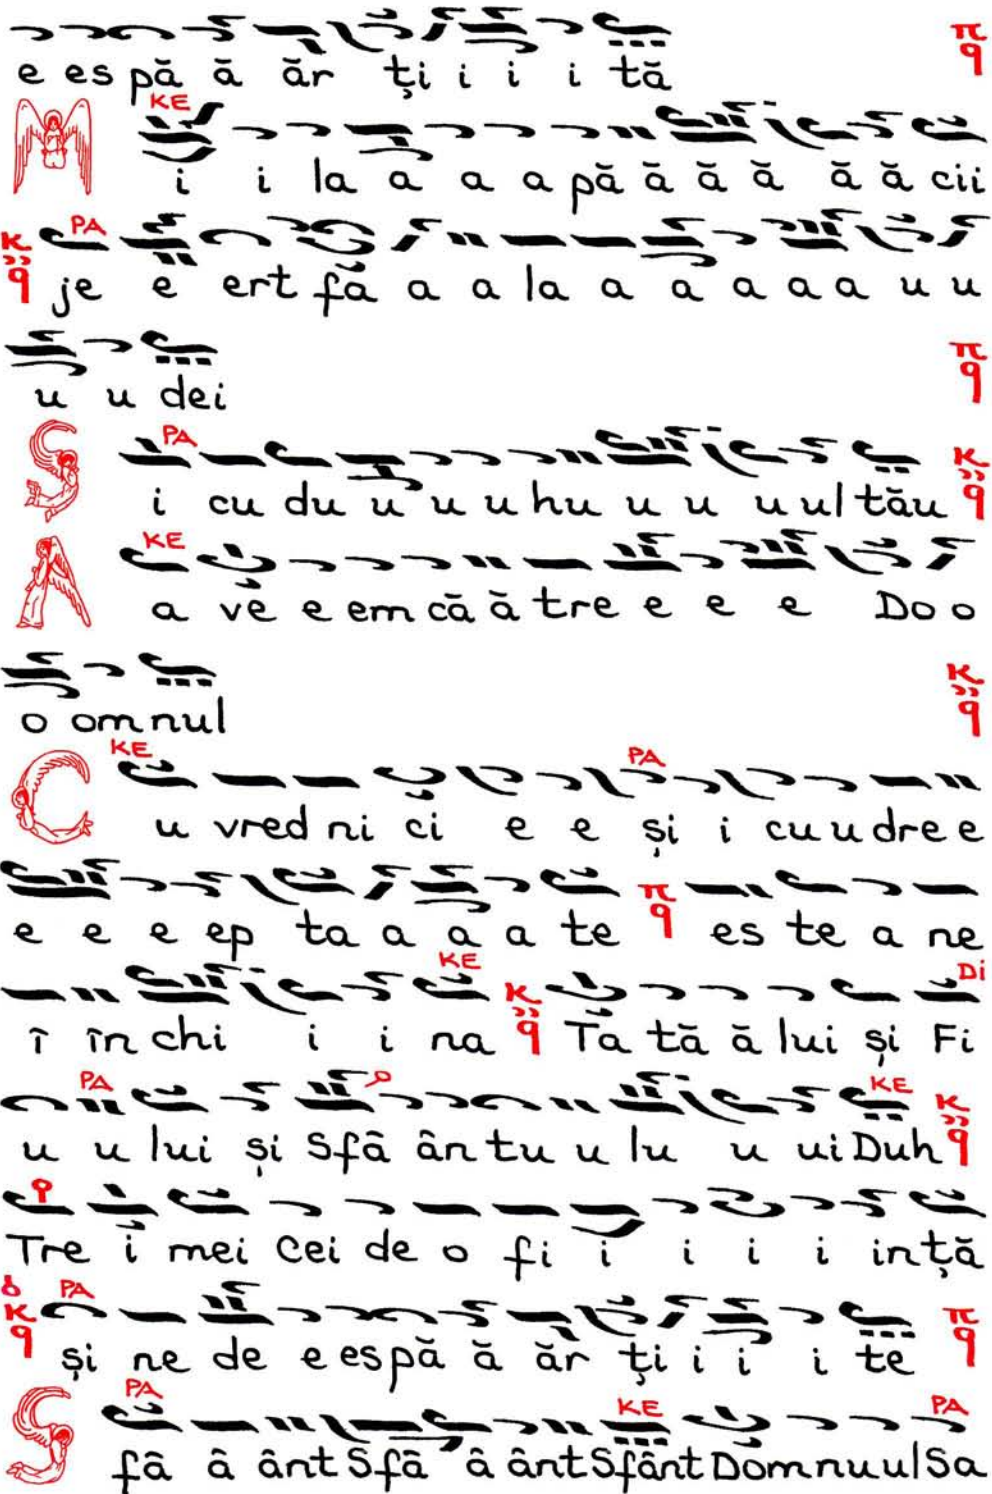 e es pă ă ăr ți i i i tă π q
KE
M i i la a a a pă ă ă ă ă ă cii
PA
κ q je e ert fă a a la a a a a a u u
u u dei π q
PA
S i cu du u u u hu u u u ul tău κ q
KE
A a ve e em că ă tre e e e Do o
o om nul κ q
KE PA
C u vred ni ci e e și i cu u dre e
e e e ep ta a a a te π q es te a ne
KE Di
î în chi i i na κ q Ta tă ă lui și Fi
PA KE
u u lui și Sfâ ân tu u lu u ui Duh κ q
Tre i mei cei de o fi i i i i in ță
PA
κ q și ne de e es pă ă ăr ți i i i te π q
PA KE PA
S fâ â ânt Sfâ â ânt Sfânt Dom nu ul Sa